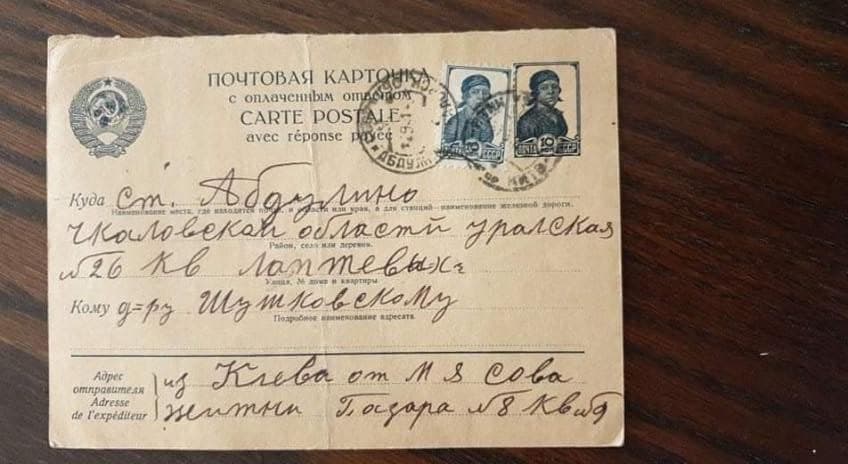 ПОЧТОВАЯ КАРТОЧКА
с оплаченным ответом
CARTE POSTALE
avec réponse payée
ПОЧТА 10 СССР
Куда ст. Абдулино
Наименование места, где находится почта, и области или края, а для станций—наименование железной дороги.
Чкаловской области уралская
Район, село или деревня.
№26 кв Лаптевых
Улица, № дома и квартиры
Кому д=ру Шутковскому
Подробное наименование адресата
Адрес
отправителя
Adresse
de l'expéditeur
из Киева от М Я Сова
житни Базара №8 Кв